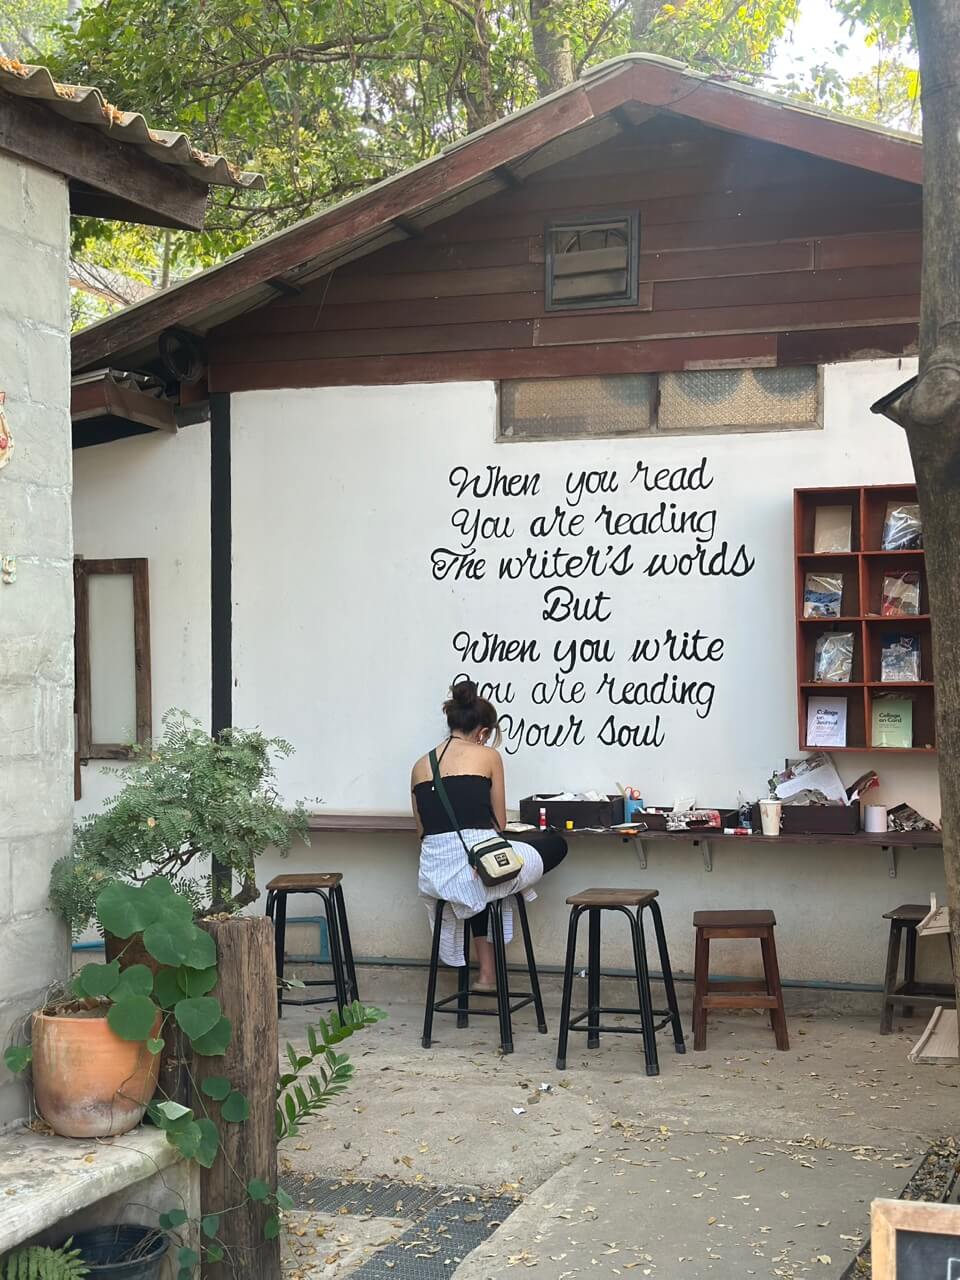 When you read
You are reading
The writer's words
But
When you write
you are reading
Your soul
Collage
on
Journal
Collage
on Card